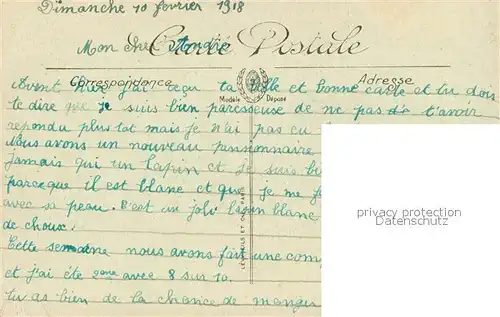 Dimanche 10 fevrier 1918
Carte Postale
Mon cher André
Correspondance
Adresse
Modèle Déposé
Avant hier j'ai reçu ta belle et bonne carte et tu dois
te dire que je suis bien paresseuse de ne pas t'avoir
repondu plus tot mais je n'ai pas eu
Nous avons un nouveau pensionnaire
jamais qui un lapin et je suis
parceque il est blanc et que je me
avec sa peau. C'est un joli lapin blanc
de choux.
Cette semaine nous avons fait une com
et j'ai été 2eme avec 8 sur 10.
tu as bien de la chance de manger
privacy protection
Datenschutz